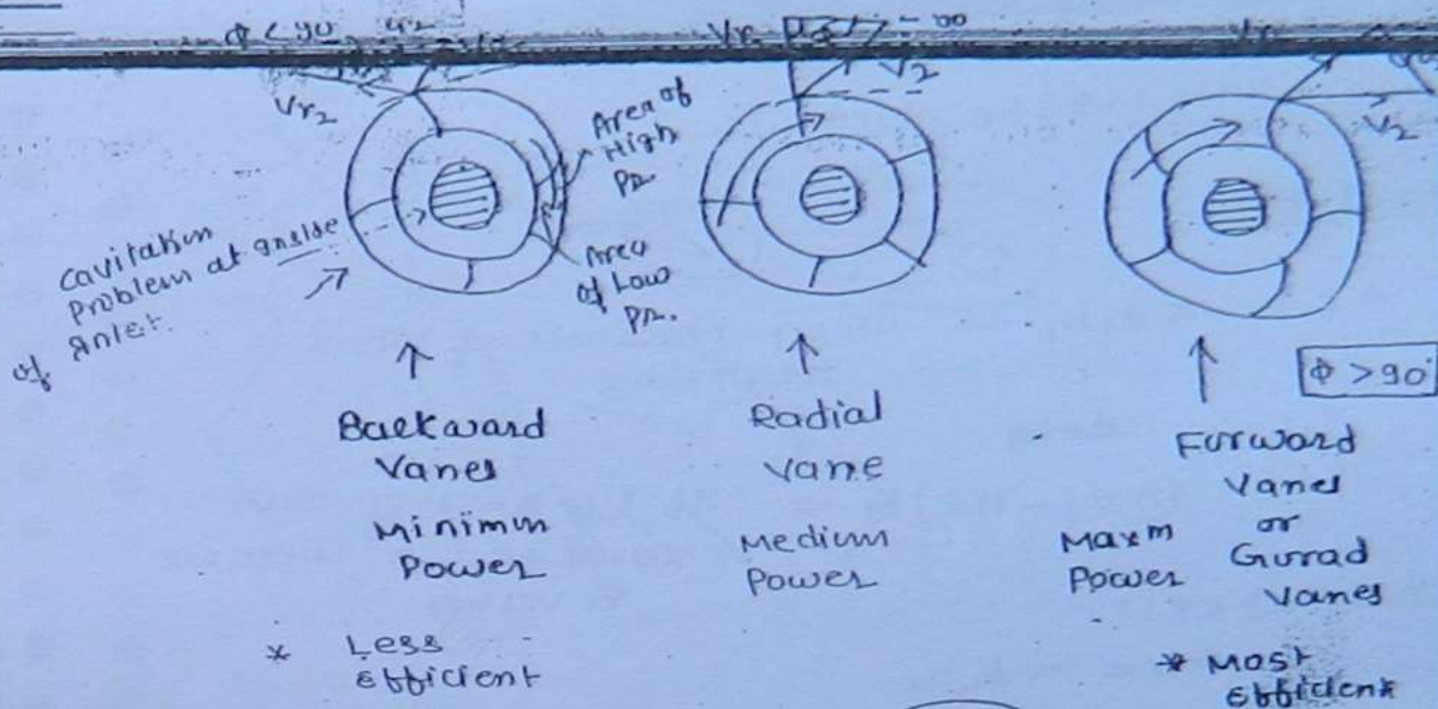 Φ < 90 u2
Vr2
Area of
High
Pr.
Area
of Low
Pr.
Cavitation
Problem at inside
of inlet.
Backward
Vanes
Minimum
Power
* Less
efficient
V2
Radial
vane
Medium
Power
V2
Φ > 90°
Forward
Vanes
or
Gurad
Vanes
Maxm
Power
* Most
efficient